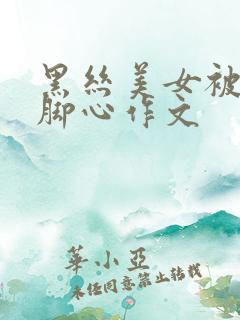 黑丝美女被
脚心作文
華小亞
未经同意禁止转载